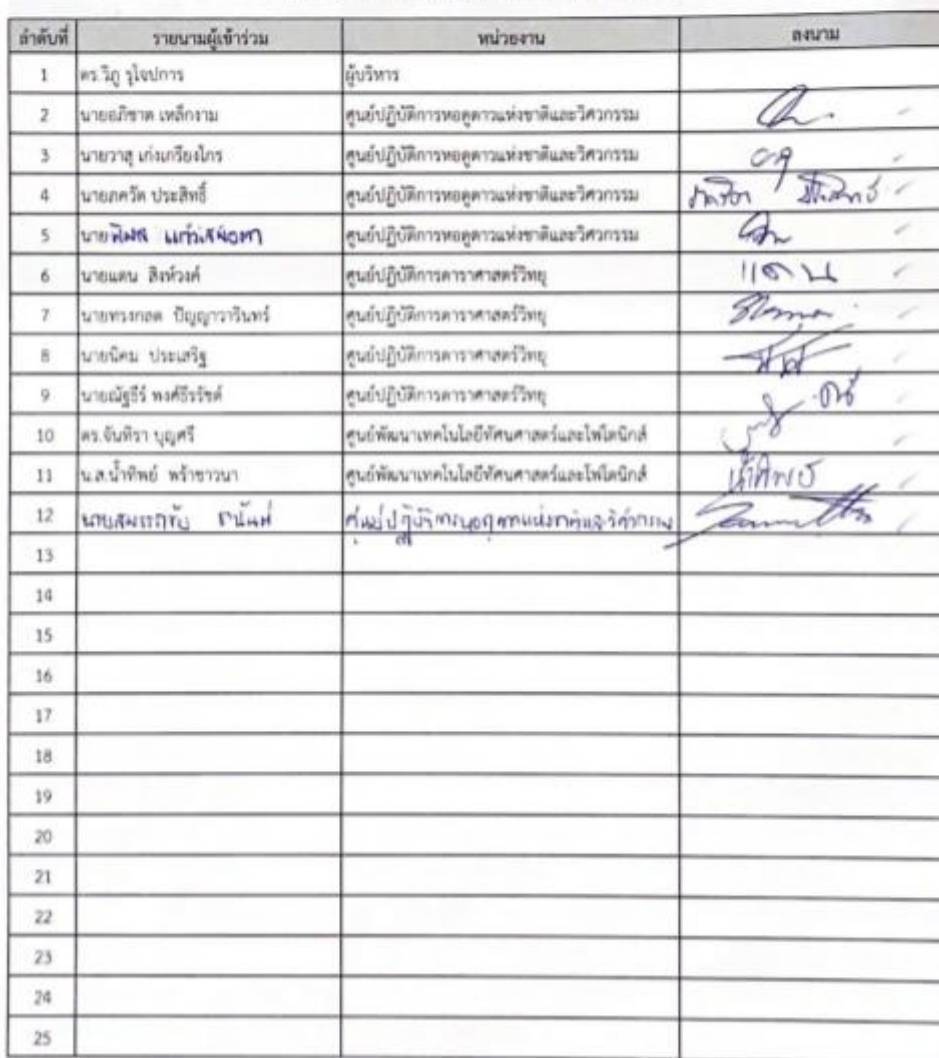 ลำดับที่ รายนามผู้เข้าร่วม หน่วยงาน ลงนาม
1 ดร.วิภู รุโจปการ ผู้บริหาร
2 นายอภิชาต เหล็กงาม ศูนย์ปฏิบัติการหอดูดาวแห่งชาติและวิศวกรรม
3 นายวาสุ เก่งเกรียงไกร ศูนย์ปฏิบัติการหอดูดาวแห่งชาติและวิศวกรรม
4 นายภควัต ประสิทธิ์ ศูนย์ปฏิบัติการหอดูดาวแห่งชาติและวิศวกรรม
5 นาย ศูนย์ปฏิบัติการหอดูดาวแห่งชาติและวิศวกรรม
6 นายแดน สิงห์วงค์ ศูนย์ปฏิบัติการดาราศาสตร์วิทยุ แดน
7 นายทรงกลด ปัญญาวารินทร์ ศูนย์ปฏิบัติการดาราศาสตร์วิทยุ
8 นายนิคม ประเสริฐ ศูนย์ปฏิบัติการดาราศาสตร์วิทยุ
9 นายณัฐธีร์ พงศ์ธีรรัชต์ ศูนย์ปฏิบัติการดาราศาสตร์วิทยุ
10 ดร.จันทิรา บุญศรี ศูนย์พัฒนาเทคโนโลยีทัศนศาสตร์และโฟโตนิกส์
11 น.ส.น้ำทิพย์ พร้าขาวนา ศูนย์พัฒนาเทคโนโลยีทัศนศาสตร์และโฟโตนิกส์ น้ำทิพย์
12 ศูนย์ปฏิบัติการหอดูดาวแห่งชาติและวิศวกรรม
13
14
15
16
17
18
19
20
21
22
23
24
25